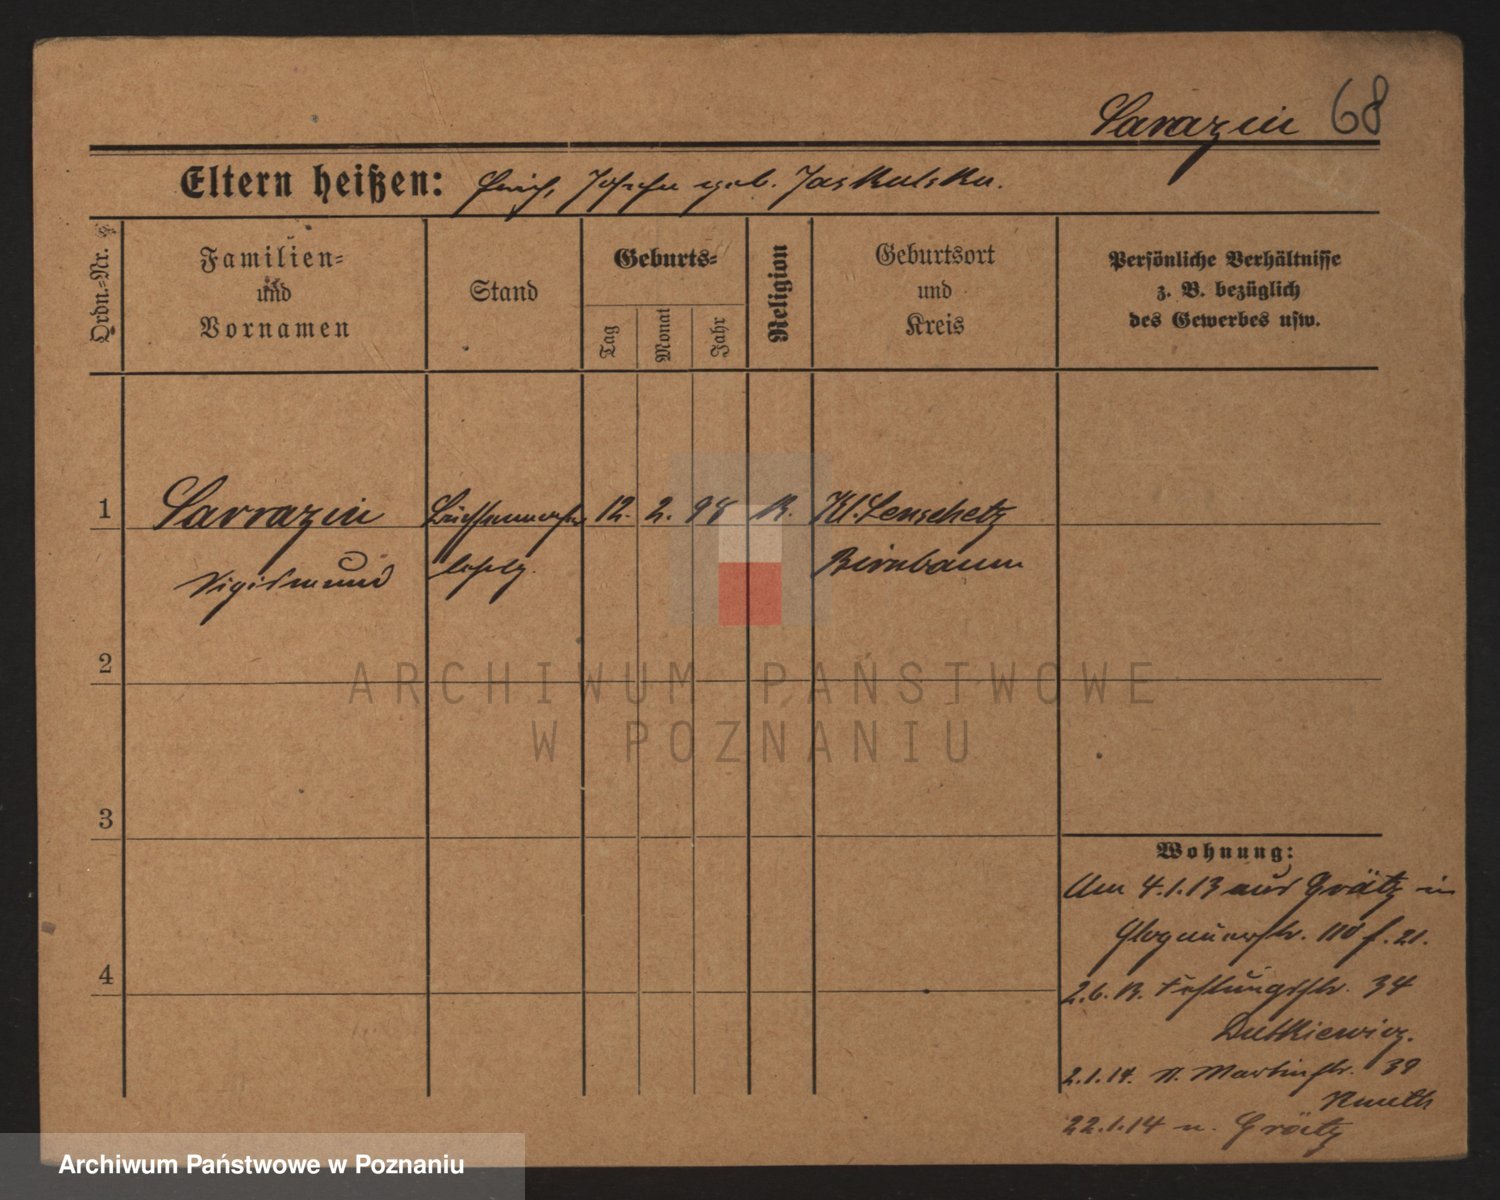 Sarazin 68
Eltern heißen: geb. Jaskulska.
Ordn.-Nr.
Familien-
und
Vornamen
Stand
Geburts-
Tag
Monat
Jahr
Religion
Geburtsort
und
Kreis
Persönliche Verhältnisse
z. B. bezüglich
des Gewerbes usw.
1 Sarrazin 12. 2. 98 K. Kl. Lenschetz
Sigismund Birnbaum
2
3
4
Wohnung:
Am 4.1.13 aus Grätz in
Glogauerstr. 110
Festungsstr. 34
Dutkiewicz.
2.1.14. St. Martinstr. 39
22.1.14 n. Grätz
ARCHIWUM PAŃSTWOWE
W POZNANIU
Archiwum Państwowe w Poznaniu